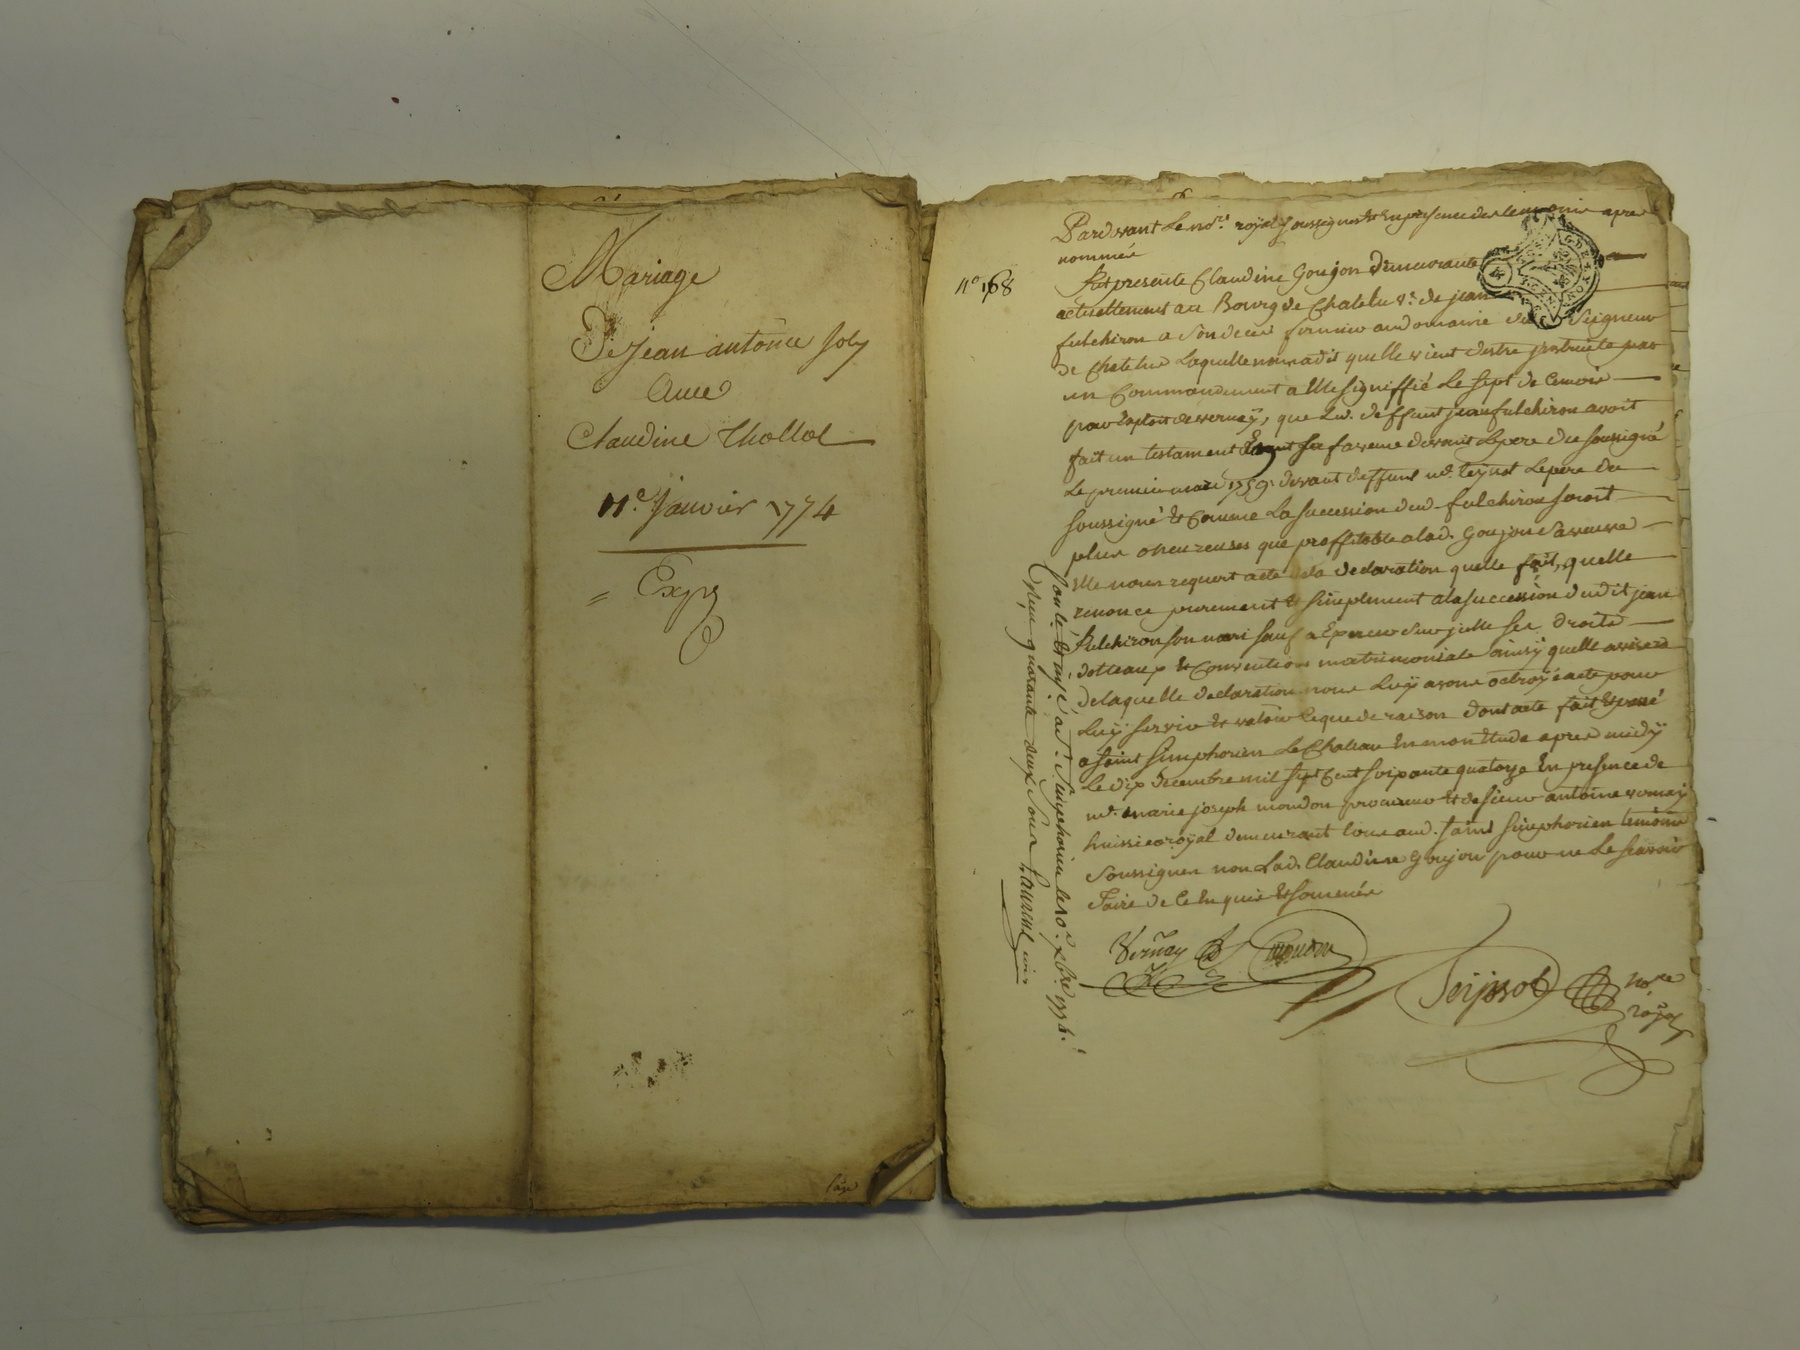 Mariage
De Jean antoine Joly
Avec
Claudine thollot
11e. Janvier 1774
= Exp
n° 168
Pardevant Le nore. royal soussigné & En presence des temoins apres
nommés
fut presente Claudine Goujon demeurante
actuellement au Bourg de Chatelus ve. de jean
fulchiron a son deces fermier au domaine du Seigneur
de Chatelus Laquelle nous a dit quelle vient destre instruite par
un Commandement a Elle signiffié Le sept de Ce mois
par Exploit de vernay, que Led. deffunt jean fulchiron avoit
fait un testament En sa faveur devant Le pere du soussigné
Le premier mars 1759. devant deffunt me. teyssot Le pere du
soussigné & Comme La succession dud. fulchiron seroit
plus onereuses que proffitable a lad. Goujon sa veuve
Elle nous requert acte de la declaration quelle fait, quelle
renonce purement & simplement a la succession dudit jean
fulchiron son mari sauf a Exercer sur jcelle ses droits
dotteaux & Convention matrimoniale ainsy quelle avisera
de laquelle declaration nous Luÿ avons octroÿé acte pour
Luÿ servir & valoir Ce que de raison dont acte fait & passé
a saint simphorien Le Chateau En mon Etude apres midÿ
Le dix decembre mil sept Cent soixante quatorze En presence de
me. marie joseph mondon procureur & de sieur antoine vernay
huissier royal demeurant tous aud. saint simphorien temoins
soussignes non Lad. Claudine Goujon pour ne Le scavoir
faire de Ce Enquise & sommée
Vernay
mondon
Teyssot nore royal
Conlé. & insé. a St. Simphorien le 10e. xbre. 1774.
Reçu quarante deux sous Laurent